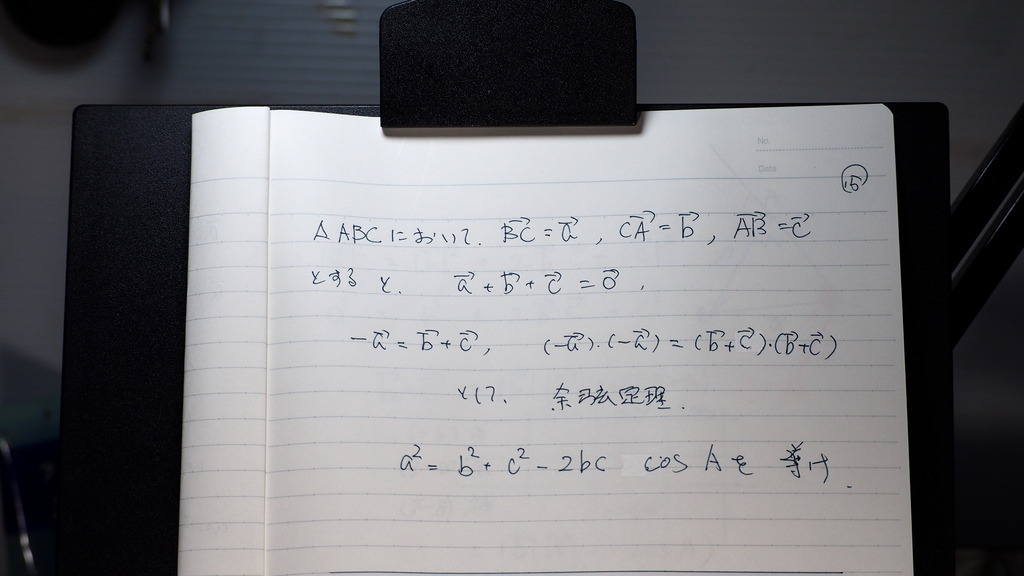 No.
Date
⑮
△ABCにおいて. BC→ = a→ , CA→ = b→ , AB→ = c→
とすると. a→ + b→ + c→ = 0→ .
-a→ = b→ + c→ , (-a→)·(-a→) = (b→+c→)·(b→+c→)
として. 余弦定理.
a² = b² + c² - 2bc cos A を 導け.